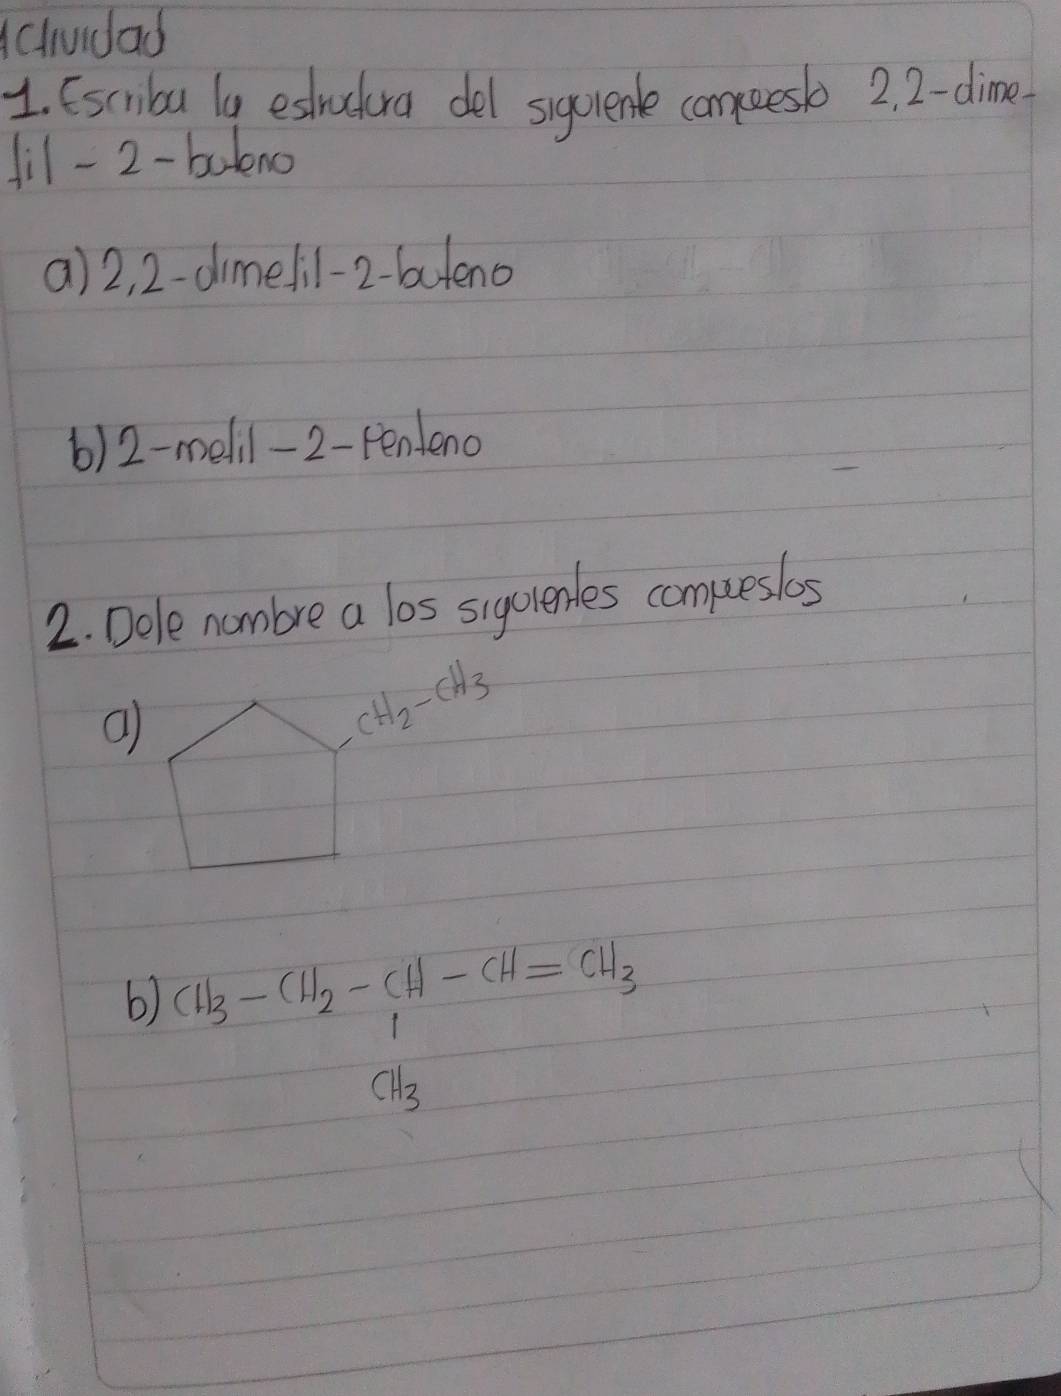 Actividad
1. Escriba la estructura del siguiente compuesto 2,2-dime-
til - 2 - buteno
a) 2,2-dimetil-2-buteno
b) 2-metil-2-Penteno
2. Dele nombre a los siguientes compuestos
a) CH2-CH3
b) CH3 - CH2 - CH - CH = CH3
CH3